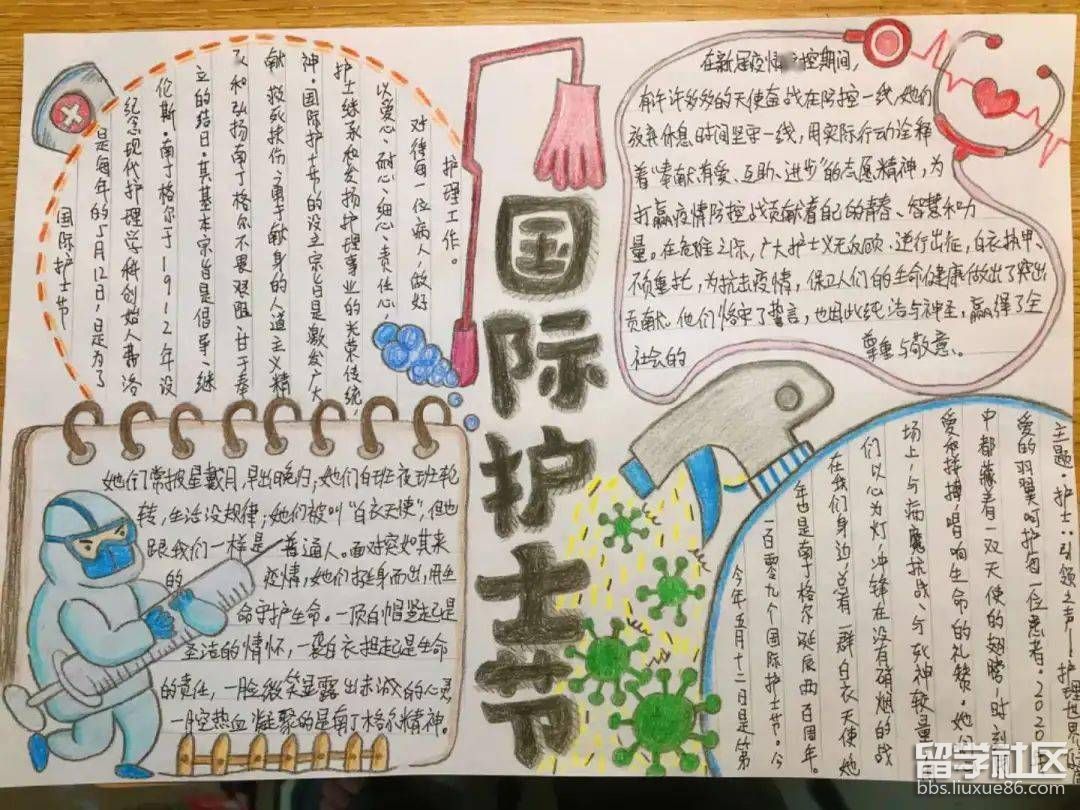 国际护士节
国际护士节
是每年的5月12日,是为了
纪念现代护理学科创始人弗洛
伦斯·南丁格尔于1912年设
立的结日·其基本宗旨是倡导、继
承和弘扬南丁格尔不畏艰阻、甘于奉
献、救死扶伤、勇于献身的人道主义精
神·国际护士节的设立宗旨是激发广大
护士继承和发扬护理事业的光荣传统,
以爱心、耐心、细心、责任心,
对待每一位病人做好
护理工作。
在新冠疫情控期间,
有许许多多的天使奋战在防控一线,她们
放弃休息时间坚守一线,用实际行动诠释
着“奉献有爱、互助、进步”的志愿精神,为
打赢疫情防控战贡献着自己的青春、智慧和力
量。在危难之际,广大护士义无反顾、逆行出征,白衣执甲、
不负重托,为抗击疫情,保卫人们的生命健康做出了突出
贡献。他们恪守了誓言,也因此纯洁与神圣,赢得了全
社会的尊重与敬意、。
她们常披星戴月,早出晚归,她们白班夜班轮
转,生活没规律;她们被叫“白衣天使”,但也
跟我们一样是普通人。面对突如其来
的疫情,她们挺身而出,用生
命守护生命。一顶白帽竖起是
圣洁的情怀,一袭白衣担起是生命
的责任,一脸微笑显露出赤诚的心灵,
一腔热血凝聚的是南丁格尔精神。
今年五月十二日是第
一百零九个国际护士节。今
年也是南丁格尔诞辰两百周年。
在我们身边,总有一群白衣天使,她
们以心为灯,冲锋在没有硝烟的战
场上,与病魔抗战、与死神较量
爱和拼搏,唱响生命的礼赞。她们
中都藏着一双天使的翅膀,时刻用
爱的羽翼呵护每一位患者。2020年
主题·护士:引领之声——护理世界
留学社区
bbs.liuxue86.com